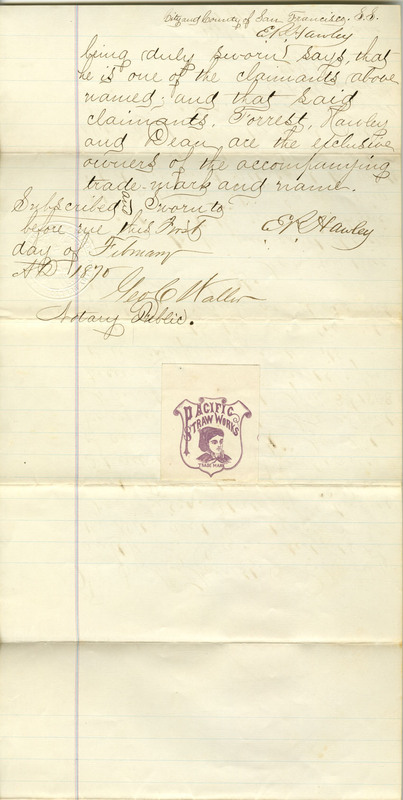 City and County of San Francisco. S.S.
E R Hawley
being duly sworn says, that
he is one of the claimants above
named; and that said
claimants, Forrest, Hawley
and Dean are the exclusive
owners of the accompanying
trade-mark and name.
Subscribed and Sworn to
before me this First
E R Hawley
day of February
AD 1870
Geo C Waller
Notary Public.
PACIFIC
STRAW WORKS
TRADE MARK